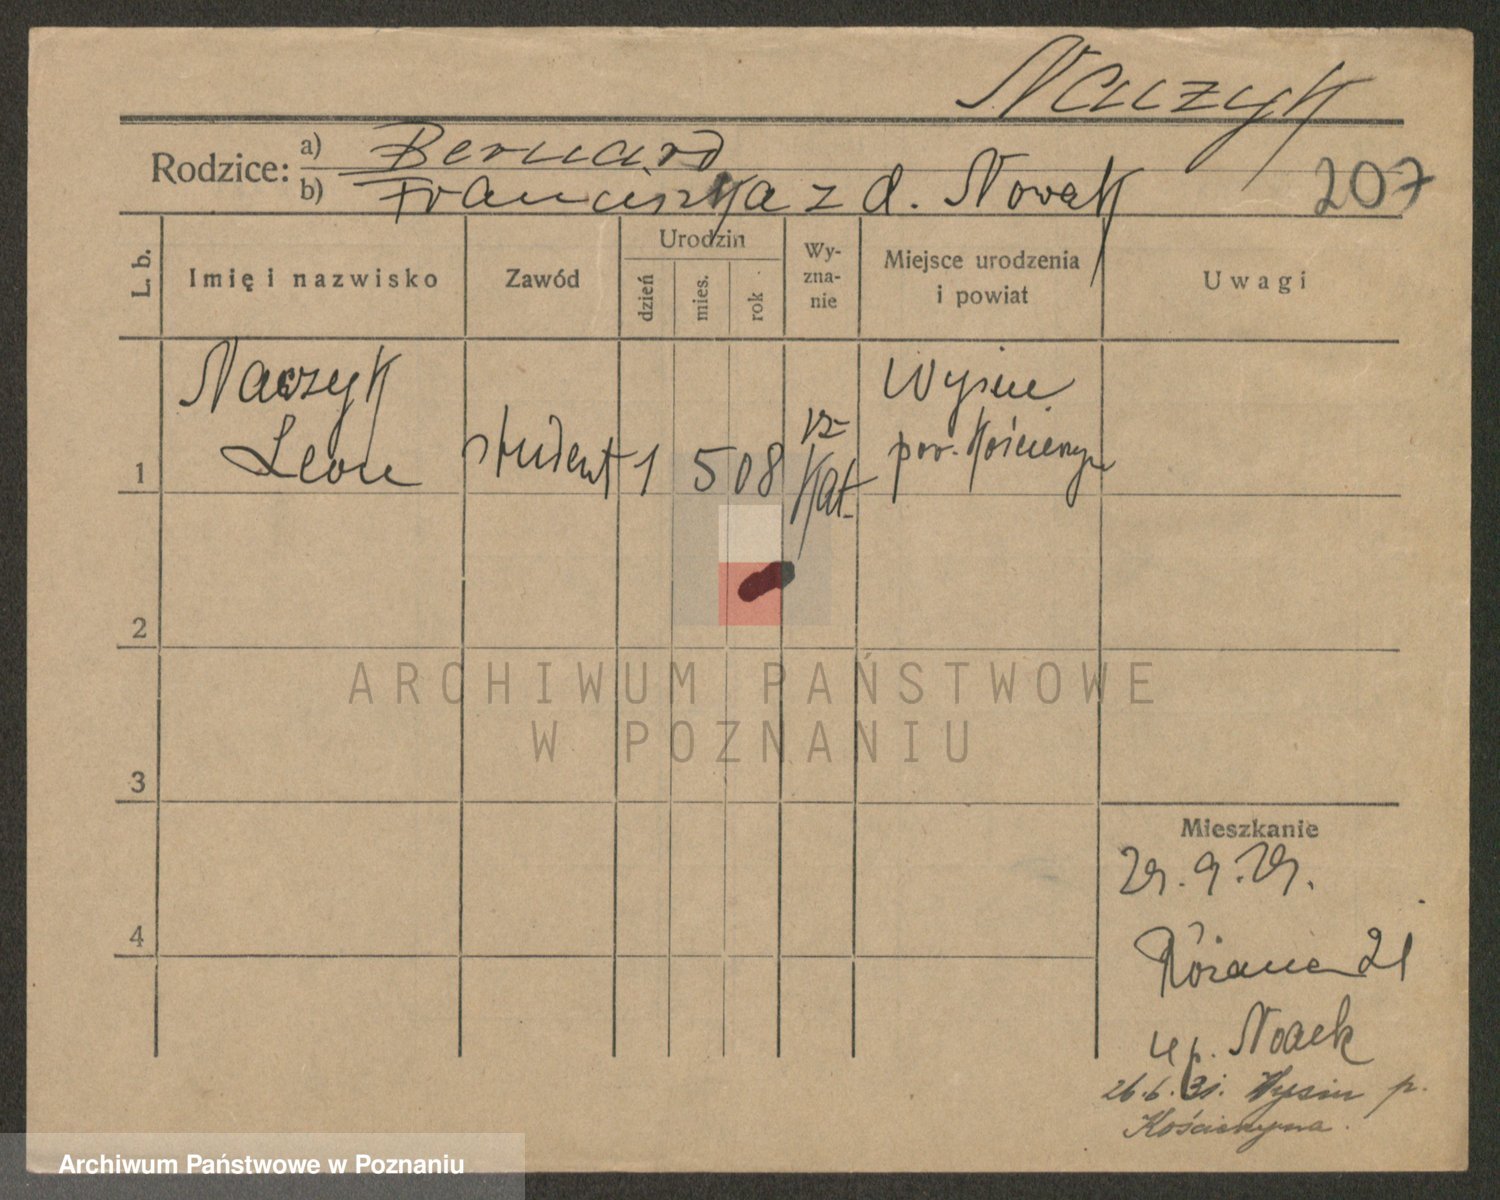 Naczyk
Rodzice: a) Bernard
b) Franciszka z d. Nowak
207
L. b.
Imię i nazwisko
Zawód
Urodzin
dzień
mies.
rok
Wy-
zna-
nie
Miejsce urodzenia
i powiat
Uwagi
Naczyk
Leon
student
1
5
08
rz
kat.
Wysin
pow. Kościerzyn
1
2
3
4
ARCHIWUM PAŃSTWOWE
W POZNANIU
Mieszkanie
29. 9. 29.
Różana 21
u p. Noack
26. 6. 31. Wysin p.
Kościerzyna.
Archiwum Państwowe w Poznaniu